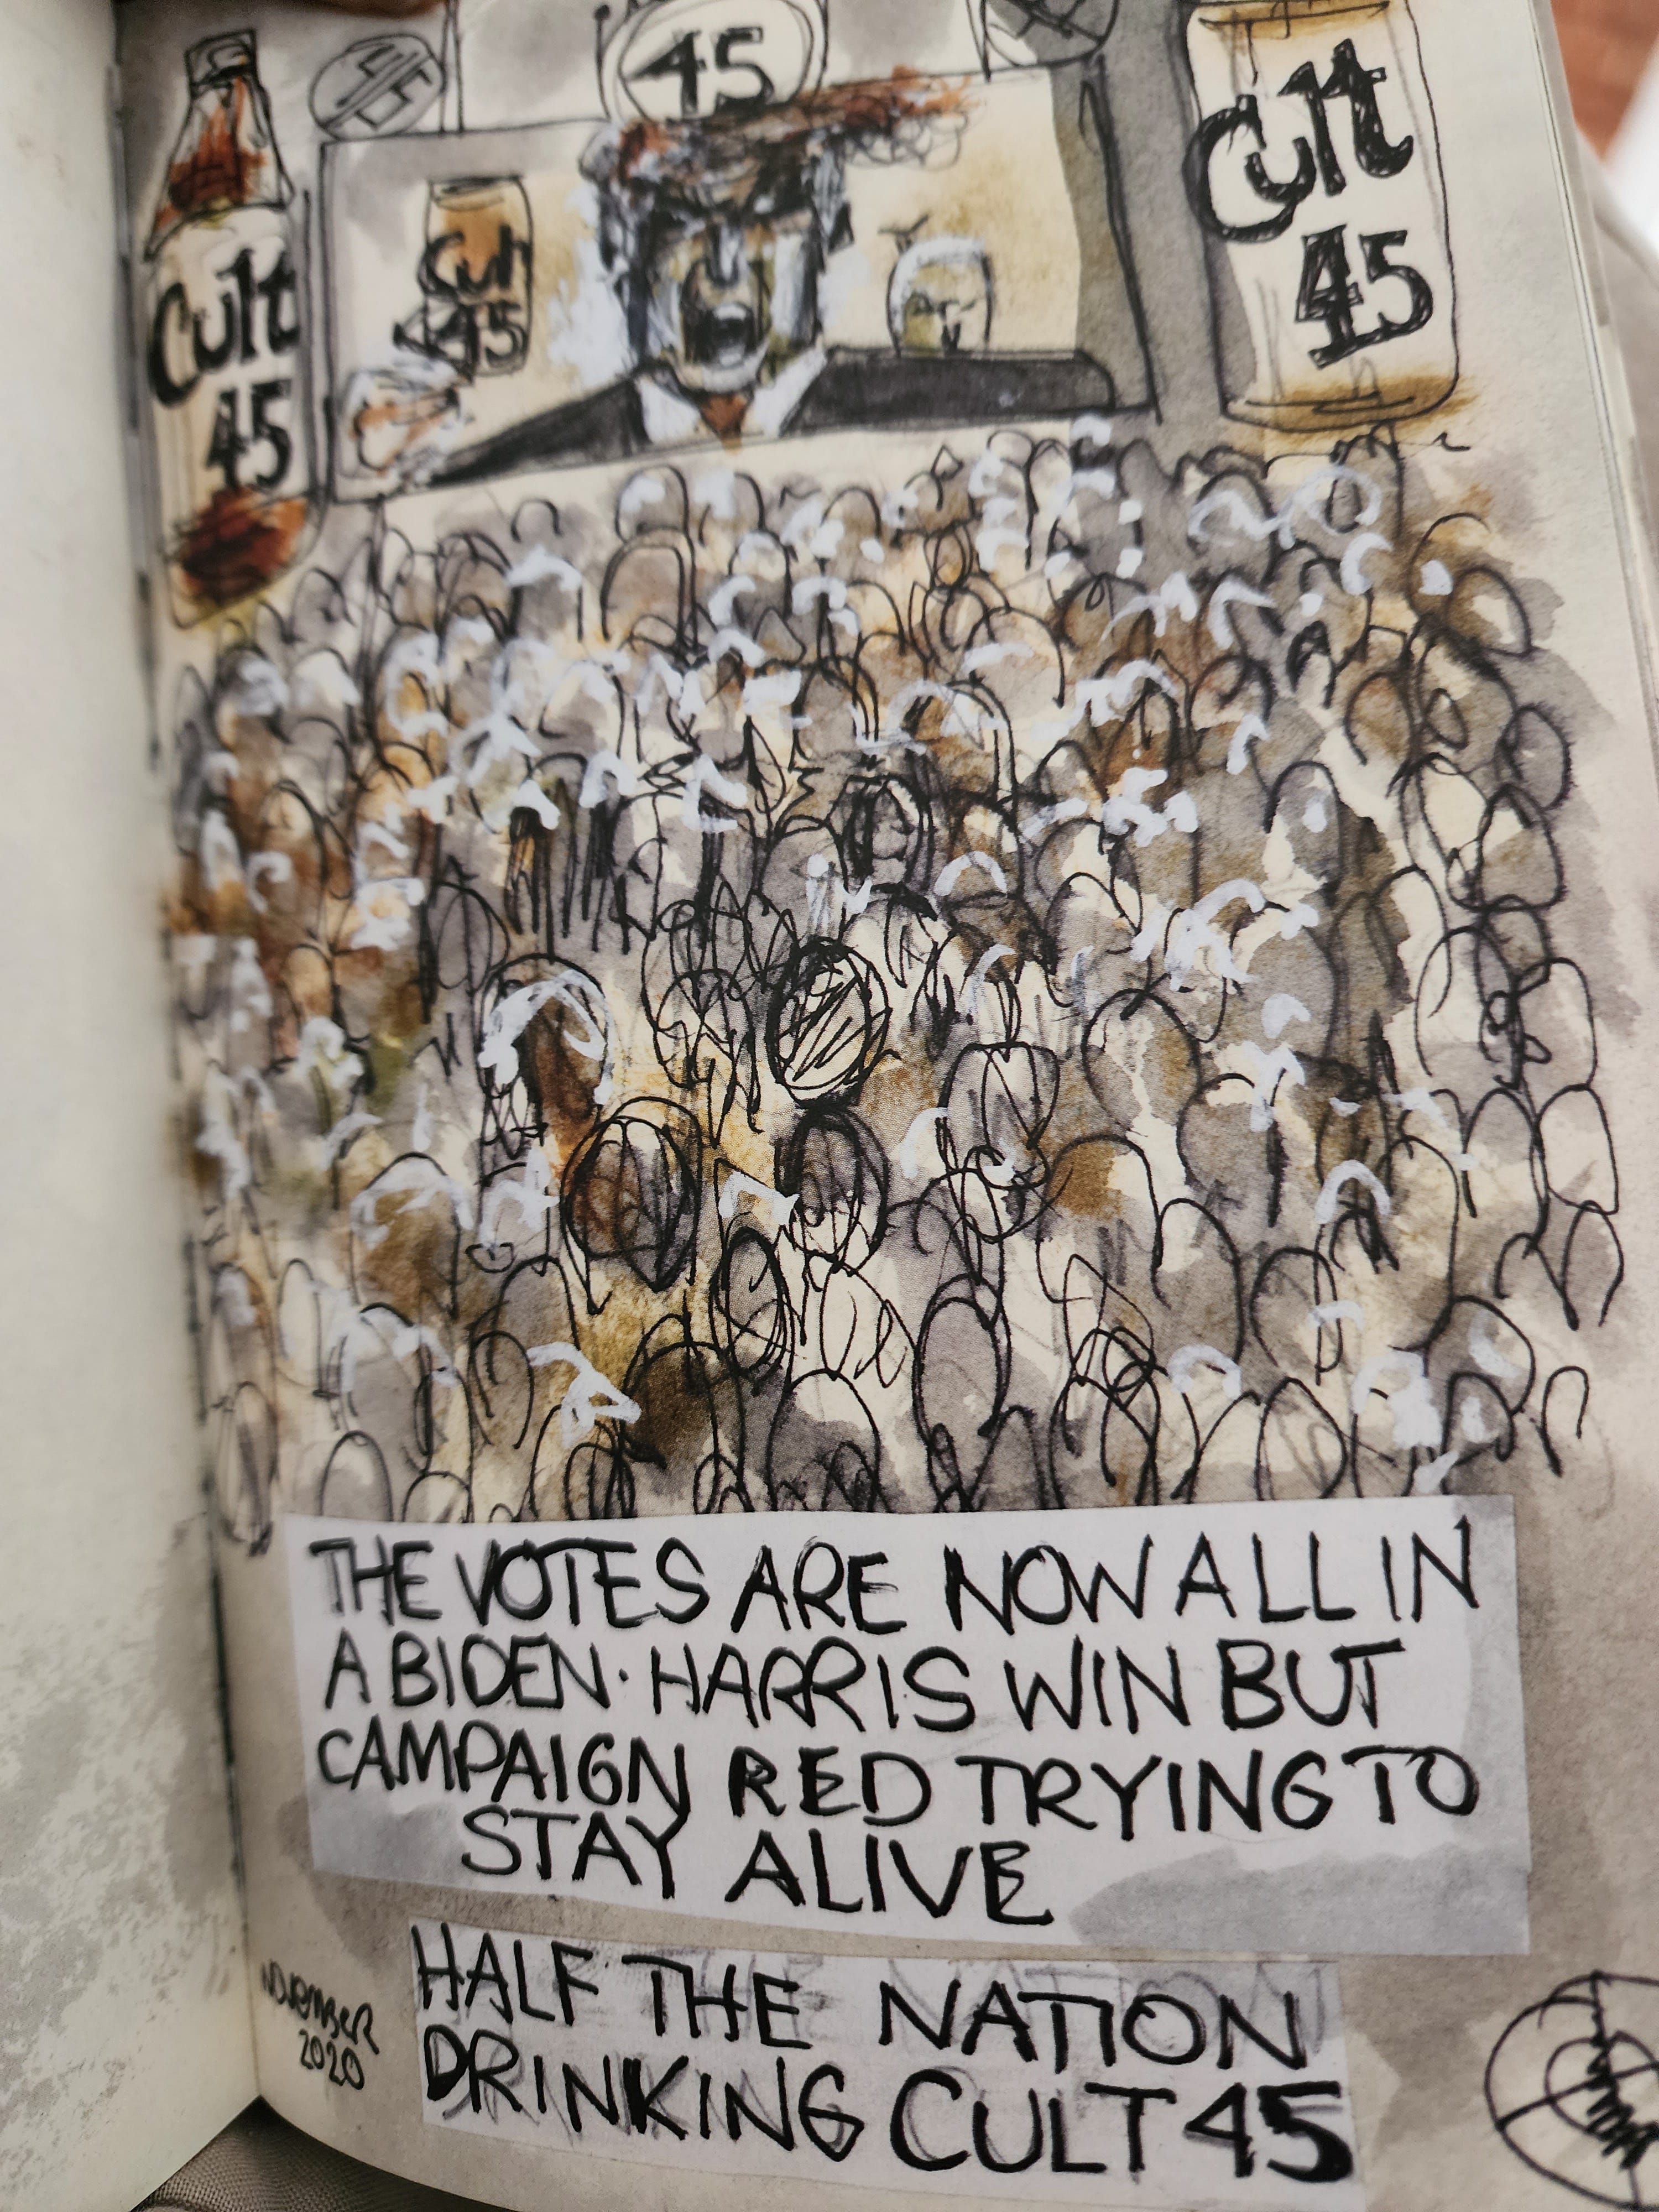 45
45
Cult
45
Cult
45
Cult
45
THE VOTES ARE NOW ALL IN
A BIDEN·HARRIS WIN BUT
CAMPAIGN RED TRYING TO
STAY ALIVE
NOVEMBER
2020
HALF THE NATION
DRINKING CULT 45